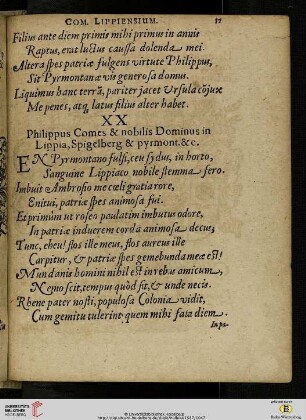 COM. LIPPIENSIUM.
Filius ante diem primis mihi primus in annis
Raptus, erat luctus caussa dolenda mei.
Altera spes patriæ fulgens virtute Philippus,
Sit Pyrmontanæ vis generosa domus.
Liquimus hanc terrã, pariter jacet Ursula cõjux
Me penes, atq; latus filius alter habet.
XX
Philippus Comes & nobilis Dominus in
Lippia, Spigelberg & pyrmont. &c.
EN Pyrmontano fulsi, ceu sydus, in horto,
Sanguine Lippiaco nobile stemma fero.
Imbuit Ambrosio me cœli gratia rore,
Enitui, patriæ spes animosa fui.
Et primùm ut roseo paulatim imbutus odore,
In patriæ induerem corda animosa decus;
Tunc, eheu! flos ille meus, flos aureus ille
Carpitur, & patriæ spes gemebunda mea est!
Mundanis homini nihil est in rebus amicum,
Nemo scit, tempus quòd sit, & unde necis.
Rhene pater nosti, populosa Colonia vidit,
Cum gemitu tulerint quem mihi fata diem.
UNIVERSITÄTS-
BIBLIOTHEK
HEIDELBERG
Baden-Württemberg